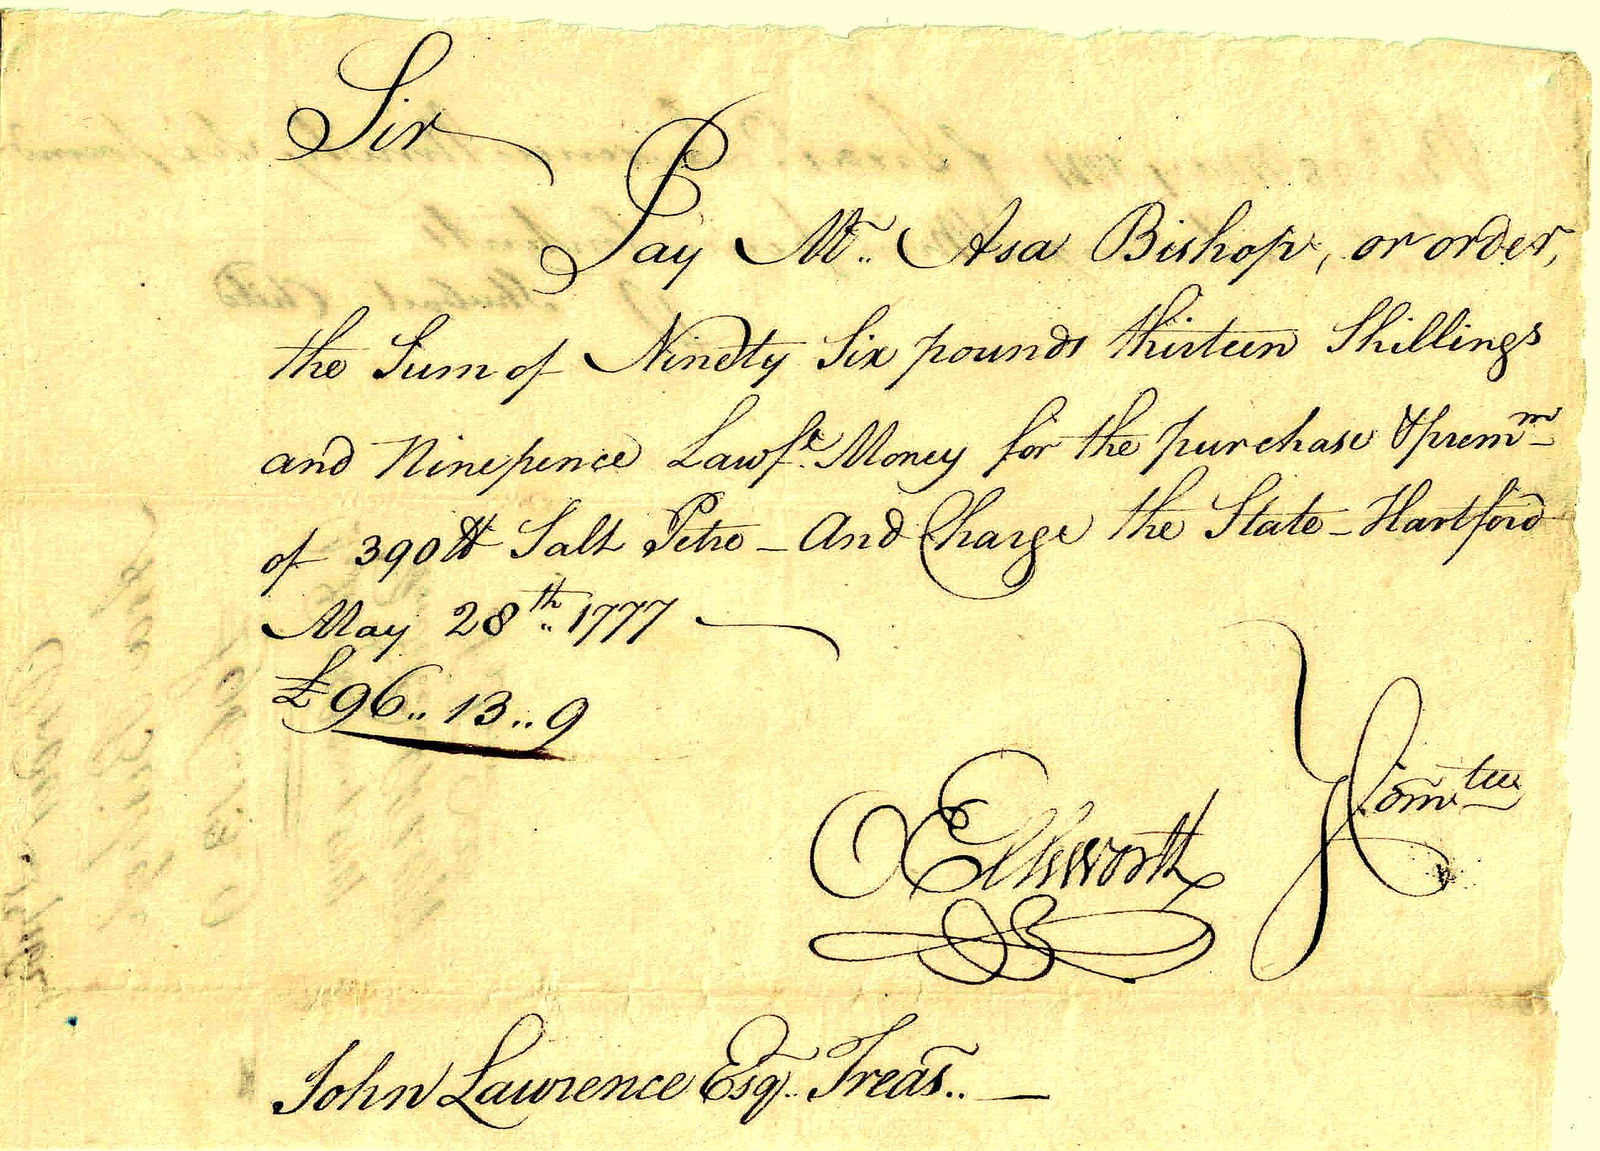 Sir
Pay Mr.. Asa Bishop, or order,
the Sum of Ninety Six pounds thirteen Shillings
and Ninepence Lawfl. Money for the purchase & premm
of 390 lb Salt Petre – And Charge the State – Hartford
May 28th.. 1777
£96..13..9
OEllsworth Comtee
John Lawrence Esqr. Treasr.. —